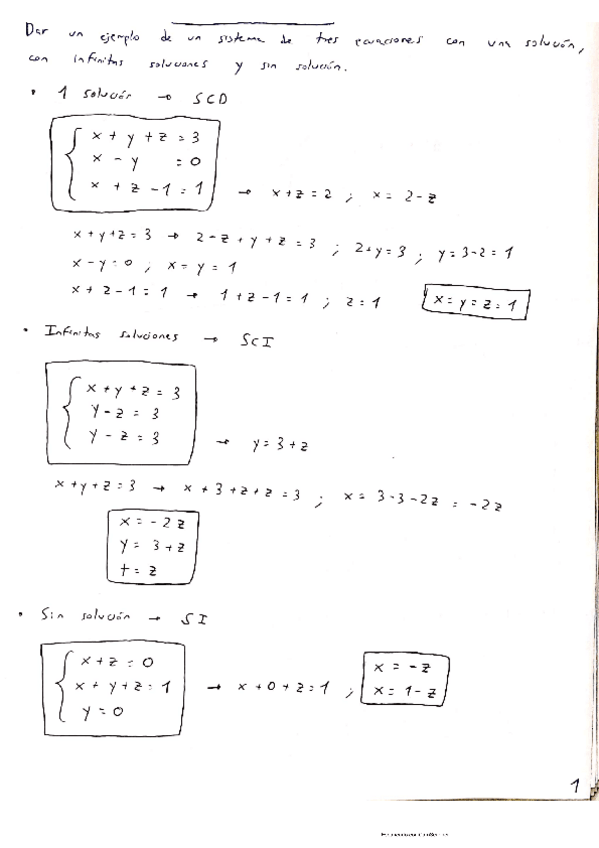 Dar un ejemplo de un sistema de tres ecuaciones con una solución,
con infinitas soluciones y sin solución.
• 1 solución → SCD
x + y + z = 3
x - y = 0
x + z - 1 = 1 → x + z = 2 ; x = 2 - z
x + y + z = 3 → 2 - z + y + z = 3 ; 2 + y = 3 ; y = 3 - 2 = 1
x - y = 0 ; x = y = 1
x + z - 1 = 1 → 1 + z - 1 = 1 ; z = 1 x = y = z = 1
• Infinitas soluciones → SCI
x + y + z = 3
y - z = 3
y - z = 3 → y = 3 + z
x + y + z = 3 → x + 3 + z + z = 3 ; x = 3 - 3 - 2z = -2z
x = -2z
y = 3 + z
t = z
• Sin solución → SI
x + z = 0
x + y + z = 1 → x + 0 + z = 1 ; x = -z
y = 0 x = 1 - z
1